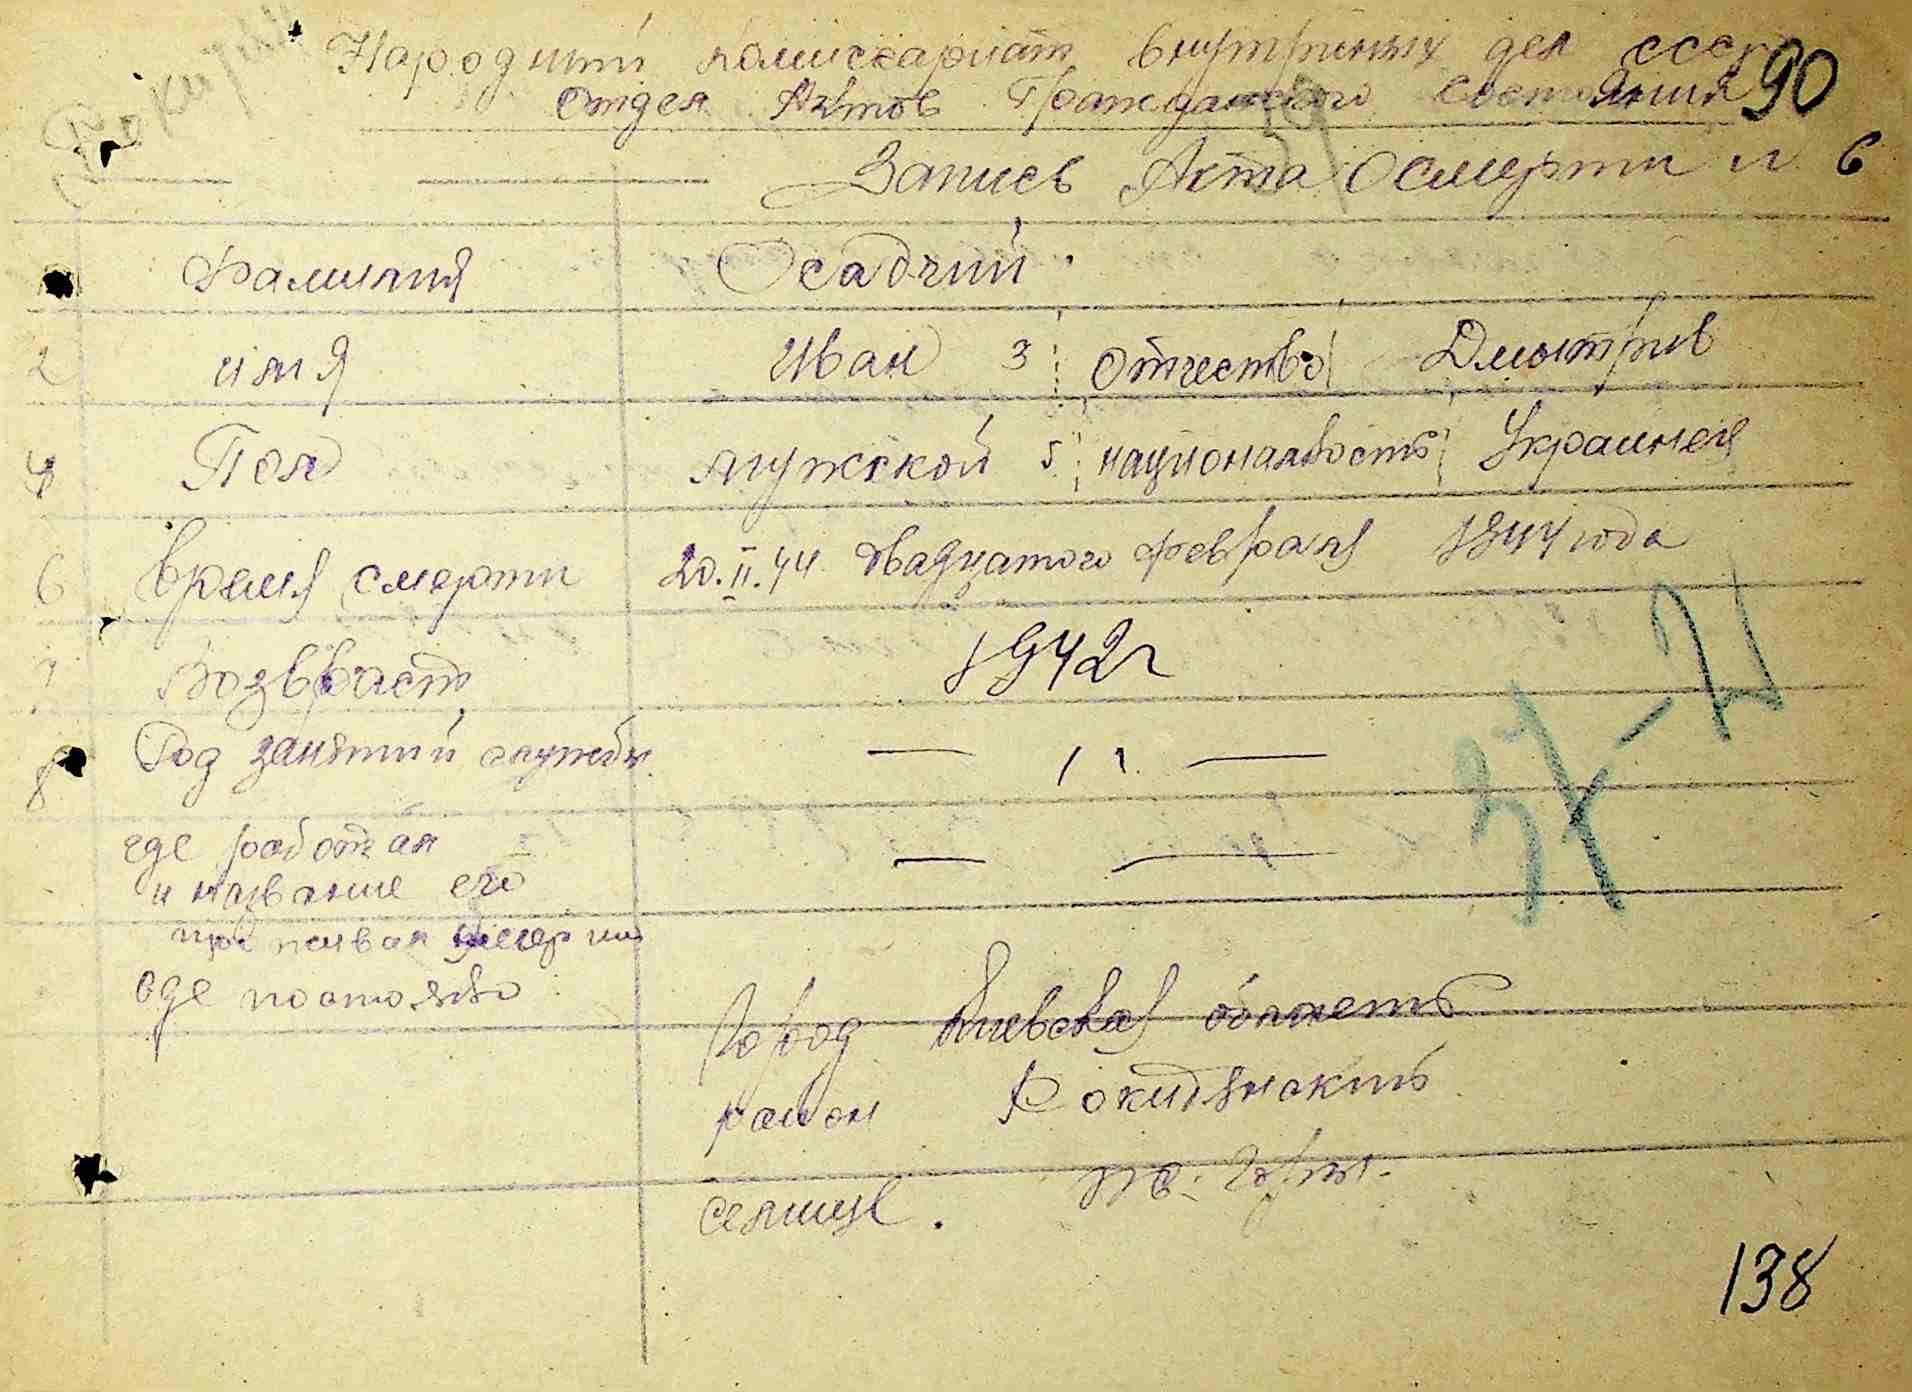 Народний комиссариат внутрених дел СССР
90
Отдел Актов Гражданского Состояния
Запись Акта О смерти N 6
Фамилия Осадчий
2 имя Иван 3 отчество Дмитрив
4 Пол мужской 5 национальность Украинец
6 время смерти 20.II.44 двадцатого февраля 1944 года
7 Возвраст 1942 г
8 Род занятий службы — " —
где работал — —
и название его
проживал умерший
где постоянно
Город Киевская область
район Рокитянский
селище.
37-21
138